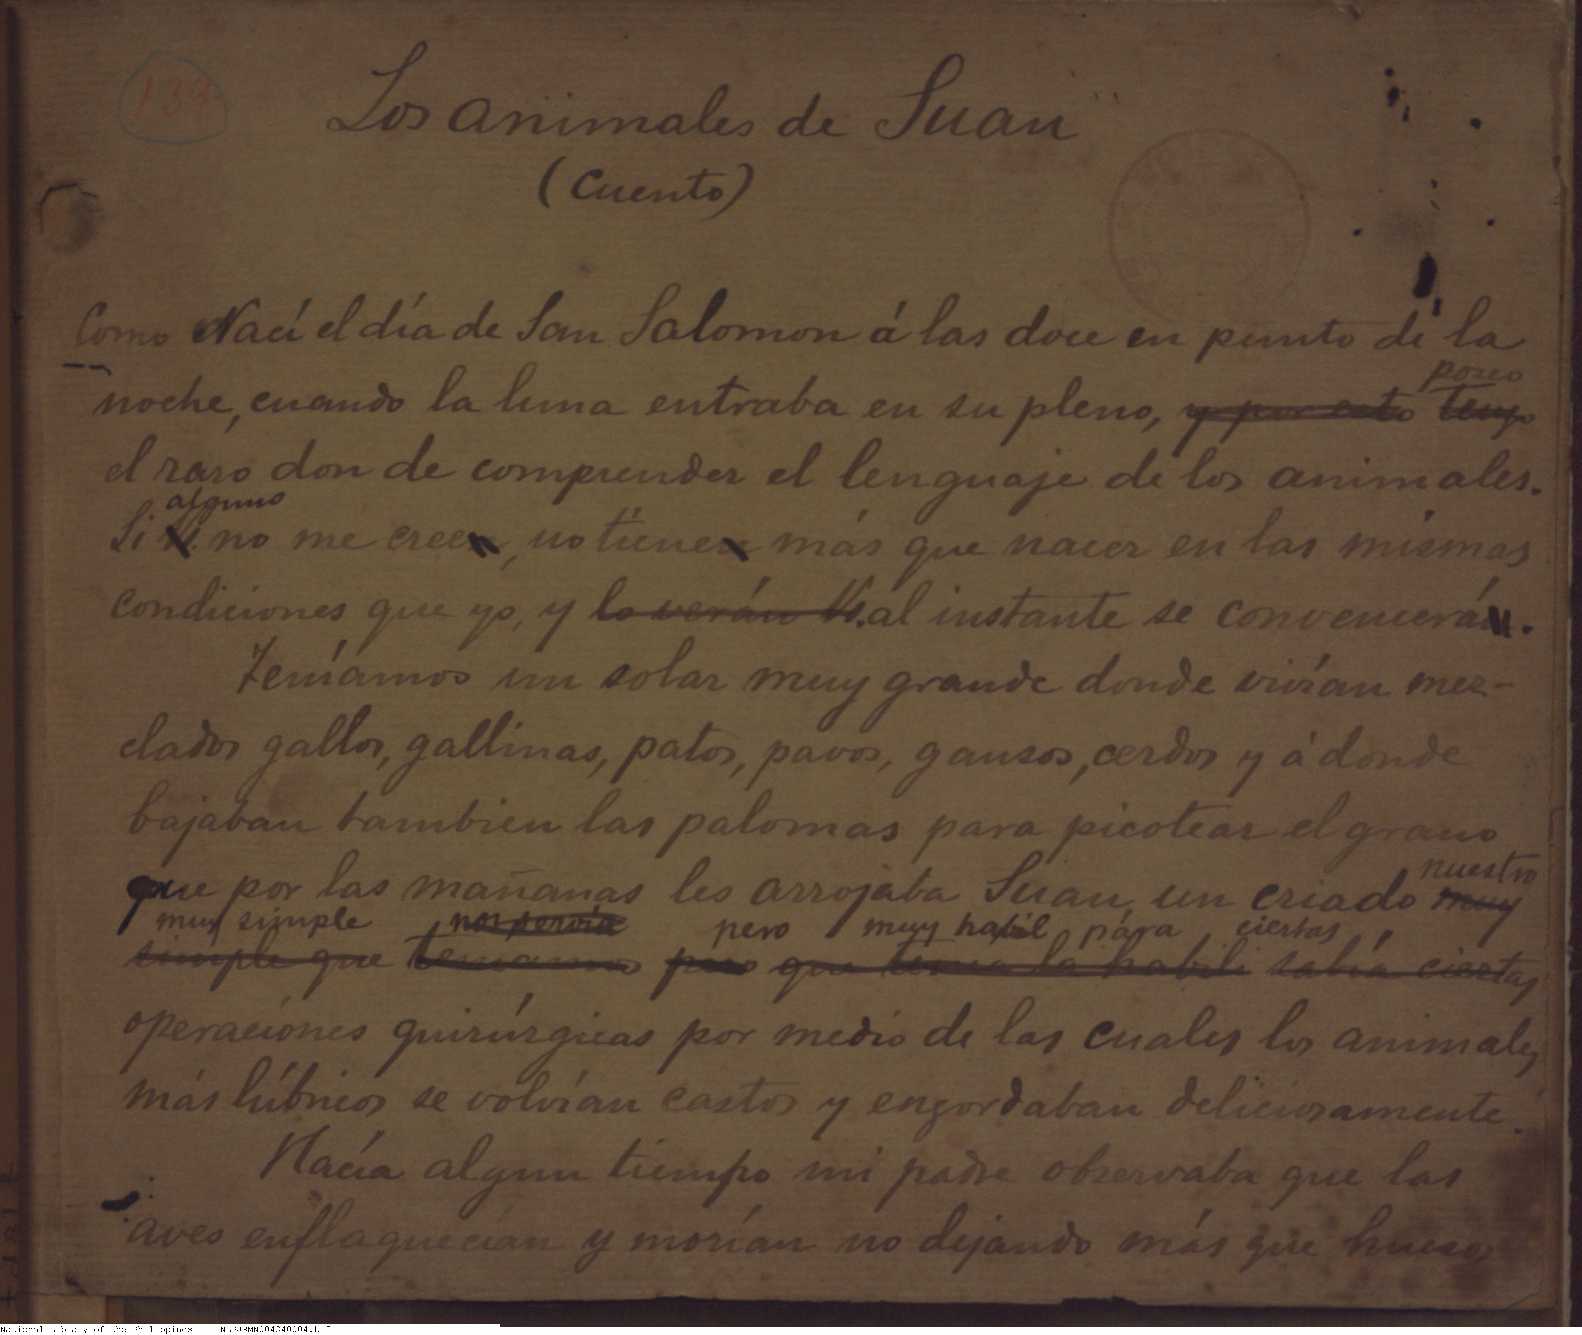 134
Los animales de Suan
(Cuento)
Como Nací el día de San Salomon á las doce en punto de la
poseo
noche, cuando la luna entraba en su pleno, y por esto tengo
el raro don de comprender el lenguaje de los animales.
alguno
Si Vs. no me creen, no tienen más que nacer en las mismas
condiciones que yo, y lo verán Vs. al instante se convencerán.
Teníamos un solar muy grande donde vivían mez-
clados gallos, gallinas, patos, pavos, gansos, cerdos y á donde
bajaban tambien las palomas para picotear el grano
nuestro
que por las mañanas les arrojaba Suan, un criado muy
muy simple nos servía pero muy habil para ciertas
simple que teniamos pero que tenia la habili sabía ciertas
operaciones quirúrgicas por medio de las cuales los animales
más lúbricos se volvían castos y engordaban deliciosamente.
Hacía algun tiempo mi padre observaba que las
aves enflaquecían y morían no dejando más que huesos
National Library of the Philippines